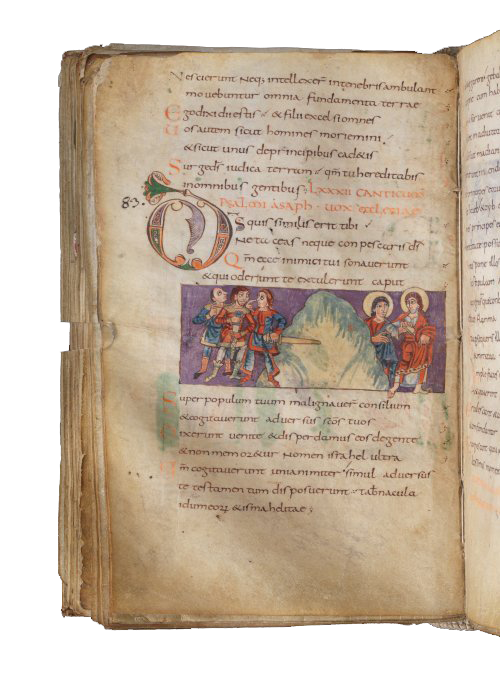 Nescierunt Neq; intellexer̄ intenebris ambulant
movebuntur omnia fundamenta terrae
Ego dixi dii estis & filii excelsi omnes
Uos autem sicut homines moriemini
& sicut unus de principibus cad&is
Surge d̄s iudica terram qm̄ tu hereditabis
inomnibus gentibus; LXXXII CANTICUM
PSALMI ASAPH UOX ECCLESIAE
83.
D̄S quis similis erit tibi
Ne taceas neque conpescaris d̄s
Qm̄ ecce inimici tui sonaverunt
& qui oderunt te extulerunt caput
Super populum tuum malignaver̄ consilium
& cogitaverunt adversus sc̄os tuos
Dixerunt venite & disperdamus eos de gente
& non memor&ur Nomen israhel ultra
Qm̄ cogitaverunt unianimiter simul adversus
te testamentum disposuerunt tabnacula
idumeorum & ismahelitae;